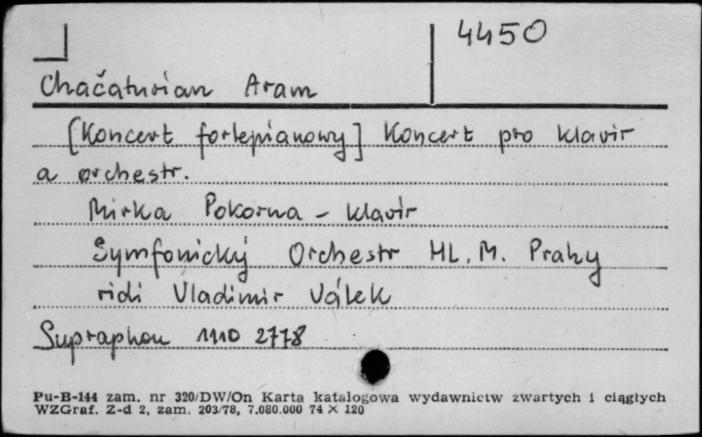 4450
Chačaturian Aram
[Koncert fortepianowy] Koncert pro klavir
a orchestr.
Mirka Pokorna - klavír
Symfonický Orchestr HL. M. Prahy
ridi Vladimir Válek
Supraphon 1110 2778
Pu-B-144 zam. nr 320/DW/On Karta katalogowa wydawnictw zwartych i ciągłych
WZGraf. Z-d 2, zam. 203/78, 7.080.000 74 × 120